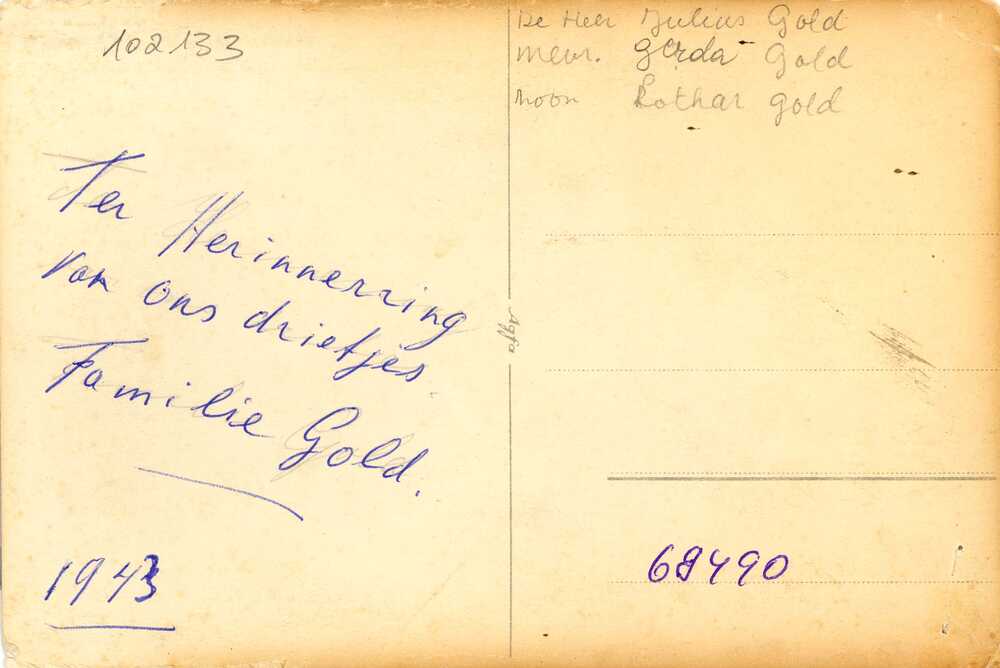 102133
Ter Herinnerring
van ons drietjes
Familie Gold.
1943
Agfa
De Heer Julius Gold
mevr. Gerda Gold
zoon Lothar Gold
68490